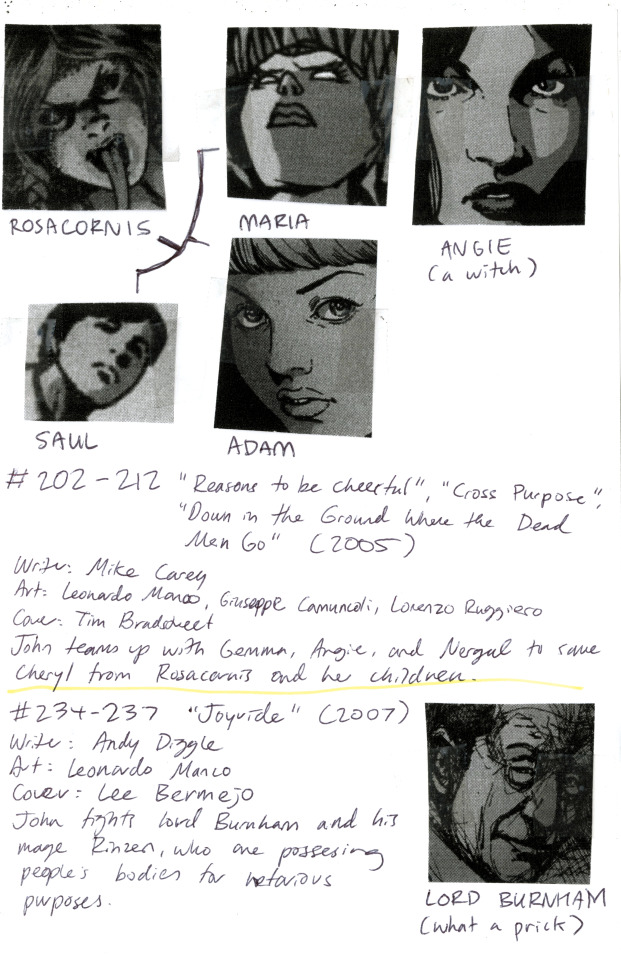 ROSACORNIS
MARIA
ANGIE
(a witch)
SAUL
ADAM
#202-212 "Reasons to be cheerful", "Cross Purpose",
"Down in the Ground Where the Dead
Men Go" (2005)
Writer: Mike Carey
Art: Leonardo Manco, Giuseppe Camuncoli, Lorenzo Ruggiero
Cover: Tim Bradstreet
John teams up with Gemma, Angie, and Nergal to save
Cheryl from Rosacarnis and her children.
#234-237 "Joyride" (2007)
Write: Andy Diggle
Art: Leonardo Manco
Cover: Lee Bermejo
John fights lord Burnham and his
mage Rinzen, who are possesing
people's bodies for nefarious
purposes.
LORD BURNHAM
(what a prick)